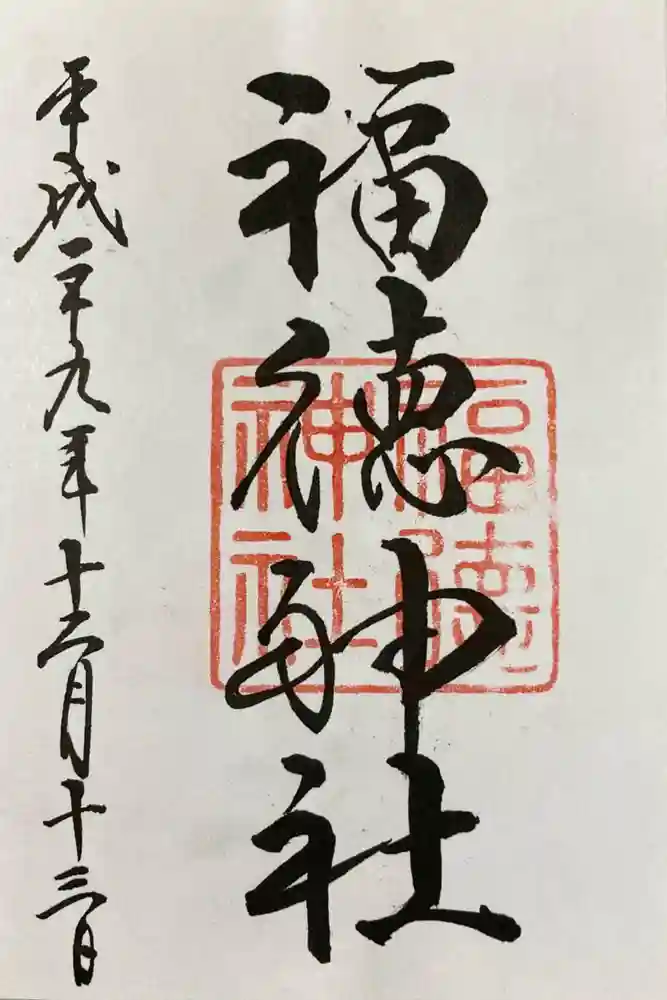 福徳神社
福徳
神社
平成二十九年十二月十三日